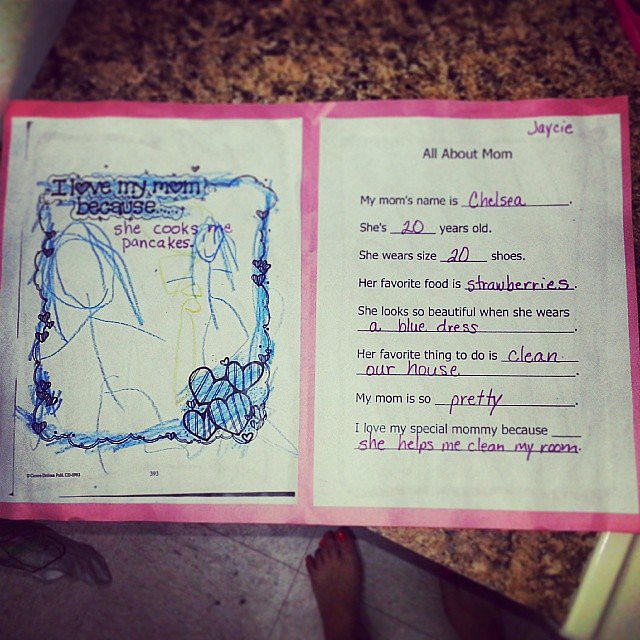 I love my mom
because....
she cooks me
pancakes.
393
Jaycie
All About Mom
My mom's name is Chelsea.
She's 20 years old.
She wears size 20 shoes.
Her favorite food is strawberries.
She looks so beautiful when she wears
a blue dress.
Her favorite thing to do is clean
our house.
My mom is so pretty.
I love my special mommy because
she helps me clean my room.